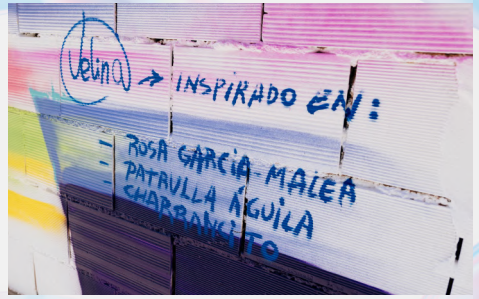 Velina → INSPIRADO EN:
- ROSA GARCÍA-MALEA
- PATRULLA AGUILA
- CHARRANCITO